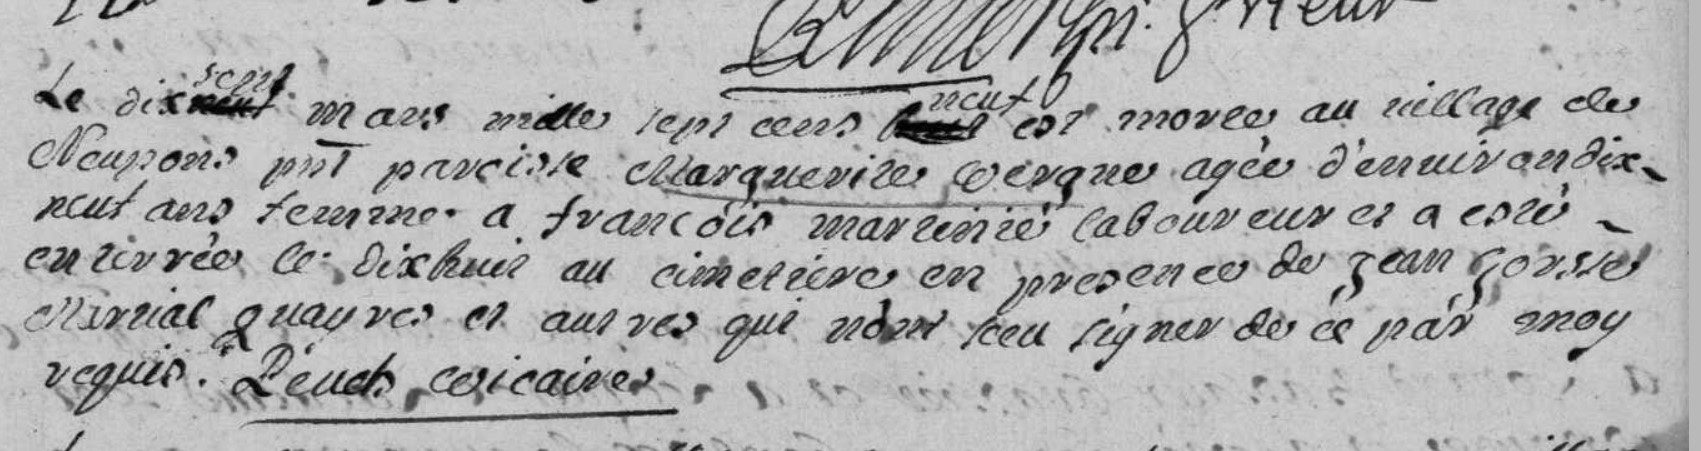 Le dix sept mars mille sept cens neuf est morte au village de
Neupons pnt paroisse Marguerite vergne agée d'environ dix
neuf ans femme a françois martinie laboureur et a esté
enterrée le dixhuit au cimetiere en presence de Jean Gorsse
Martial quayres et autres qui n'ont sceu signer de ce par moy
requis. Peuch vicaire